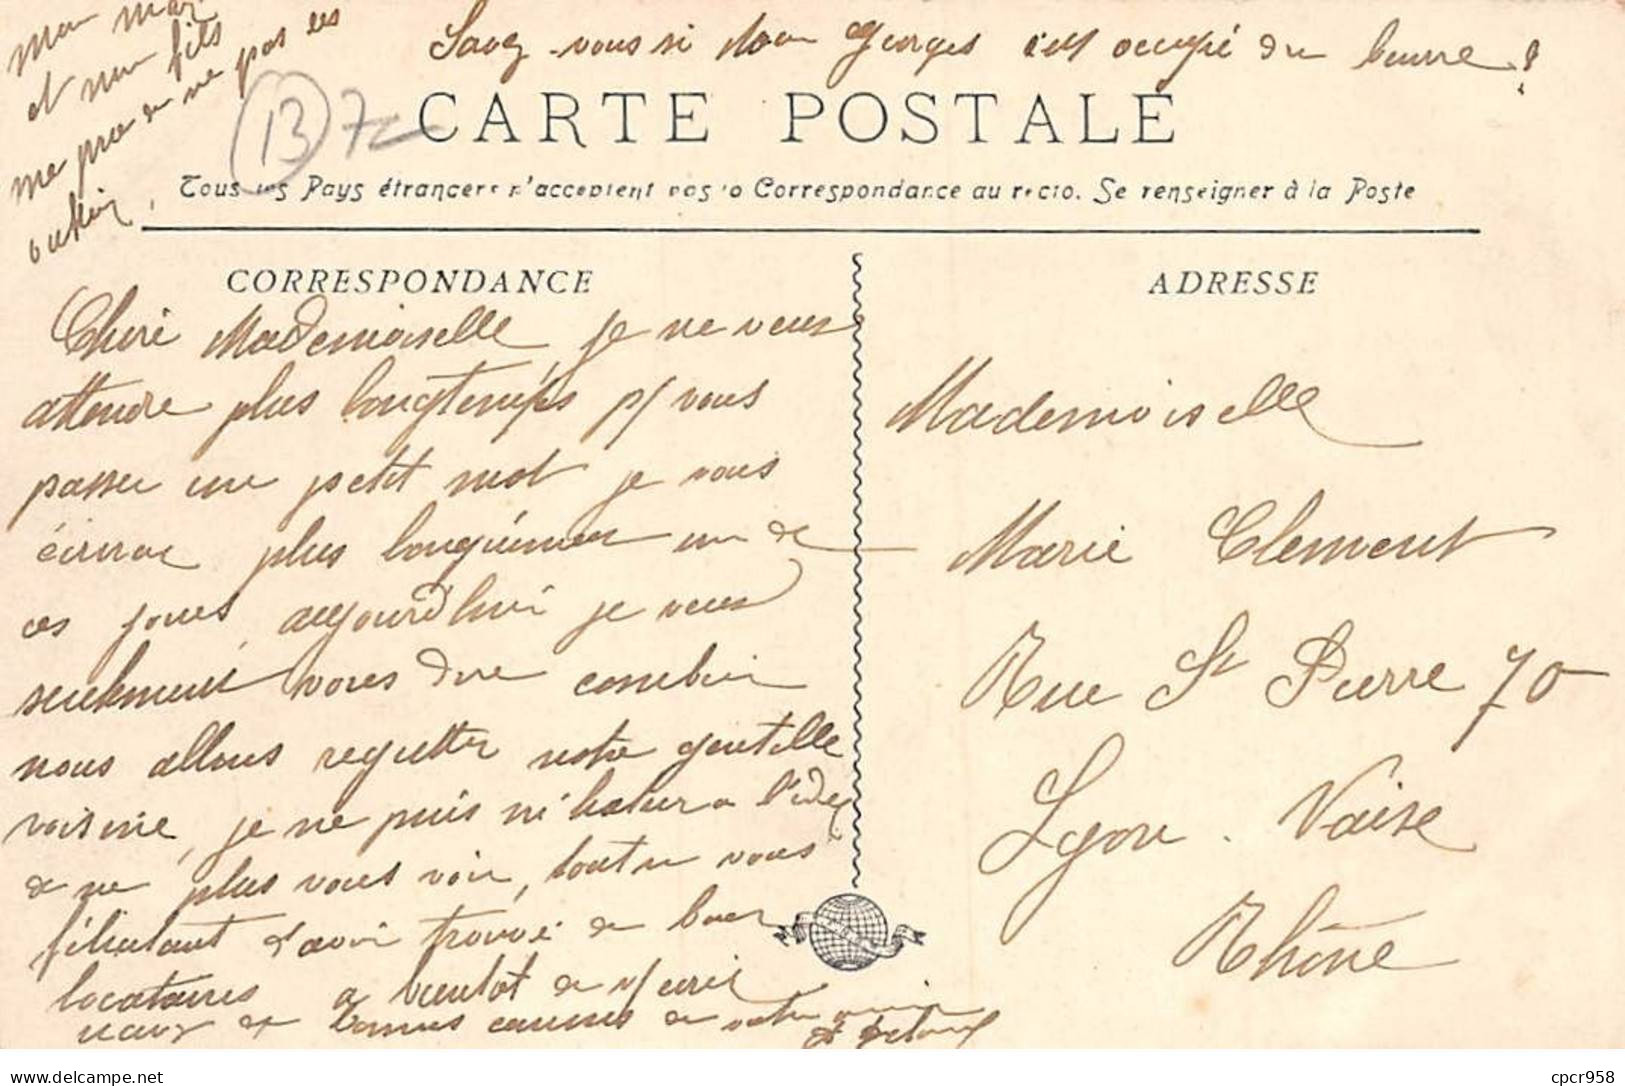 mon mari
et mon fils
me prie de ne pas les
oublier.
Savez-vous si Mon Georges s'est occupé du beurre?
13 7
CARTE POSTALE
Tous les Pays étrangers n'acceptent pas la Correspondance au recto. Se renseigner à la Poste
CORRESPONDANCE
Chère Mademoiselle je ne veux
attendre plus longtemps p/ vous
passer un petit mot je vous
écrirai plus longuement un de
ces jours, aujourd'hui je veux
seulement vous dire combien
nous allons regretter notre gentille
voisine, je ne puis m'habituer a l'idée
de ne plus vous voir, tout en vous
félicitant d'avoir trouvé de bons
locataires a bientôt de vous
et bonnes causes de votre amie
ADRESSE
Mademoiselle
Marie Clement
Rue St Pierre 70
Lyon. Vaise
Rhône
cpcr958